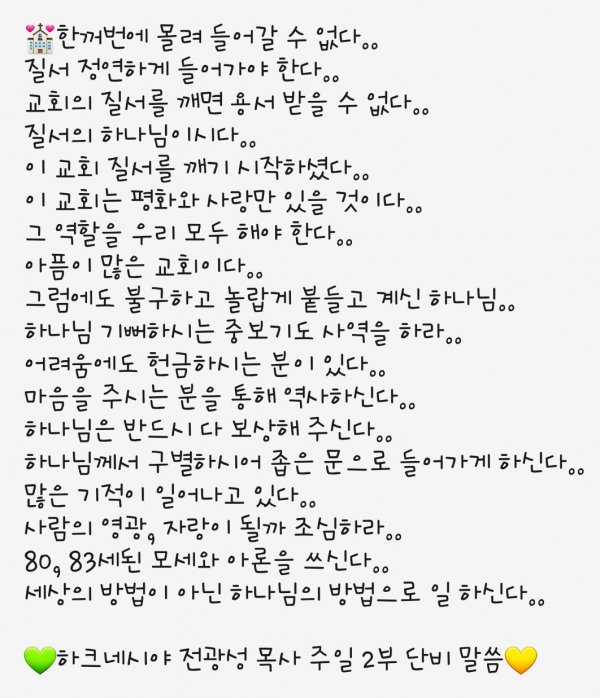 💒한꺼번에 몰려 들어갈 수 없다。。
질서 정연하게 들어가야 한다。。
교회의 질서를 깨면 용서 받을 수 없다。。
질서의 하나님이시다。。
이 교회 질서를 깨기 시작하셨다。。
이 교회는 평화와 사랑만 있을 것이다。。
그 역할을 우리 모두 해야 한다。。
아픔이 많은 교회이다。。
그럼에도 불구하고 놀랍게 붙들고 계신 하나님。。
하나님 기뻐하시는 중보기도 사역을 하라。。
어려움에도 헌금하시는 분이 있다。。
마음을 주시는 분을 통해 역사하신다。。
하나님은 반드시 다 보상해 주신다。。
하나님께서 구별하시어 좁은 문으로 들어가게 하신다。。
많은 기적이 일어나고 있다。。
사람의 영광, 자랑이 될까 조심하라。。
80, 83세된 모세와 아론을 쓰신다。。
세상의 방법이 아닌 하나님의 방법으로 일 하신다。。
💚하크네시야 전광성 목사 주일 2부 단비 말씀💛